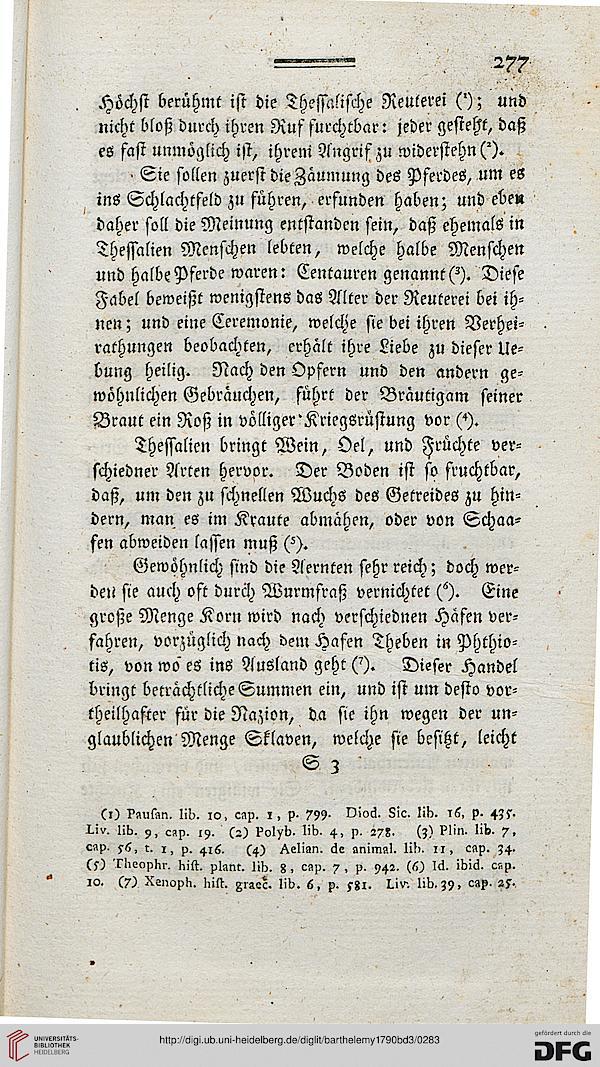 277
Höchst berühmt ist die Thessalische Reuterei (¹); und
nicht bloß durch ihren Ruf furchtbar: jeder gesteht, daß
es fast unmöglich ist, ihrem Angrif zu widerstehn (²).
Sie sollen zuerst die Zäumung des Pferdes, um es
ins Schlachtfeld zu führen, erfunden haben; und eben
daher soll die Meinung entstanden sein, daß ehemals in
Thessalien Menschen lebten, welche halbe Menschen
und halbe Pferde waren: Centauren genannt (³). Diese
Fabel beweißt wenigstens das Alter der Reuterei bei ih-
nen; und eine Ceremonie, welche sie bei ihren Verhei-
rathungen beobachten, erhält ihre Liebe zu dieser Ue-
bung heilig. Nach den Opfern und den andern ge-
wöhnlichen Gebräuchen, führt der Bräutigam seiner
Braut ein Roß in völliger Kriegsrüstung vor (⁴).
Thessalien bringt Wein, Oel, und Früchte ver-
schiedner Arten hervor. Der Boden ist so fruchtbar,
daß, um den zu schnellen Wuchs des Getreides zu hin-
dern, man es im Kraute abmähen, oder von Schaa-
fen abweiden lassen muß (⁵).
Gewöhnlich sind die Aernten sehr reich; doch wer-
den sie auch oft durch Wurmfraß vernichtet (⁶). Eine
große Menge Korn wird nach verschiednen Häfen ver-
fahren, vorzüglich nach dem Hafen Theben in Phthio-
tis, von wo es ins Ausland geht (⁷). Dieser Handel
bringt beträchtliche Summen ein, und ist um desto vor-
theilhafter für die Nazion, da sie ihn wegen der un-
glaublichen Menge Sklaven, welche sie besitzt, leicht
S 3
(1) Pausan. lib. 10, cap. 1, p. 799. Diod. Sic. lib. 16, p. 435.
Liv. lib. 9, cap. 19. (2) Polyb. lib. 4, p. 278. (3) Plin. lib. 7,
cap. 56, t. 1, p. 416. (4) Aelian. de animal. lib. 11, cap. 34.
(5) Theophr. hist. plant. lib. 8, cap. 7, p. 942. (6) Id. ibid. cap.
10. (7) Xenoph. hist. graec. lib. 6, p. 581. Liv. lib. 39, cap. 25.
UNIVERSITÄTS-
BIBLIOTHEK
HEIDELBERG
http://digi.ub.uni-heidelberg.de/diglit/barthelemy1790bd3/0283
gefördert durch die
DFG